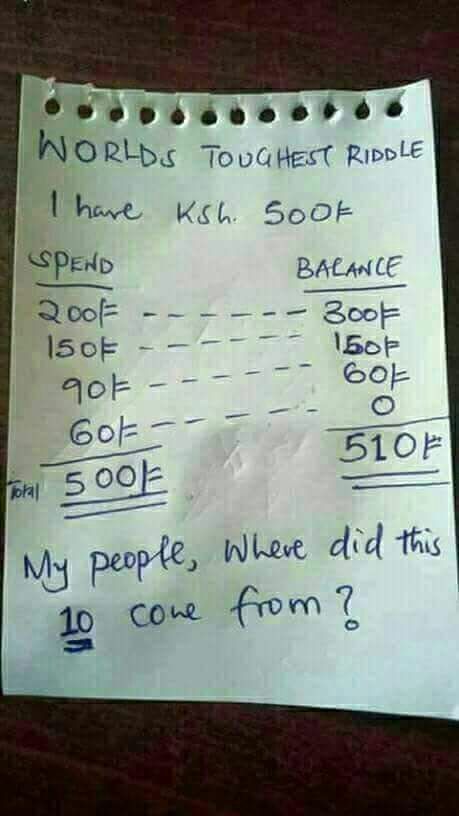 WORLDS TOUGHEST RIDDLE
I have Ksh. 500/=
SPEND BALANCE
200/= ------ 300/=
150/= ------ 150/=
90/= ------ 60/=
60/= ------ 0
Total 500/= 510/=
My people, Where did this
10 come from?